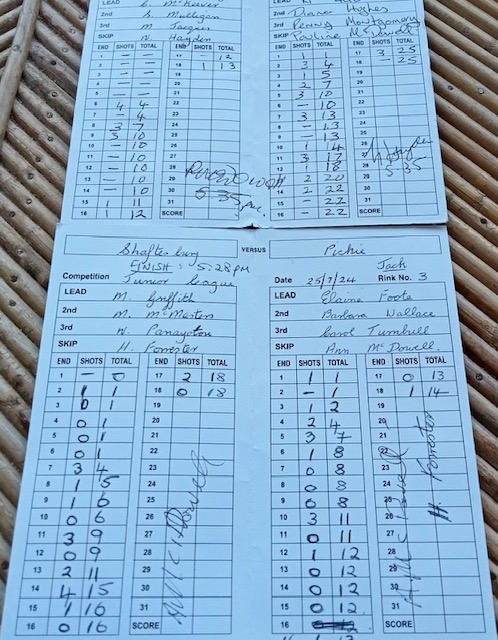 LEAD C. McKeever
2nd S. Mulligan
3rd M. Jaques
SKIP N. Hayden
END SHOTS TOTAL END SHOTS TOTAL
1 — — 17 — 12
2 — — 18 1 13
3 — — 19
4 — — 20
5 — — 21
6 4 4 22
7 — 4 23
8 3 7 24
9 3 10 25
10 — 10 26
11 — 10 27
12 — 10 28
13 — 10 29
14 — 10 30
15 1 11 31
16 1 12 SCORE
LEAD
2nd Diane Hughes
3rd Penny Montgomery
SKIP Pauline McDowell
END SHOTS TOTAL END SHOTS TOTAL
1 1 1 17 3 25
2 3 4 18 — 25
3 1 5 19
4 2 7 20
5 3 10 21
6 — 10 22
7 3 13 23
8 — 13 24
9 — 13 25
10 1 14 26
11 3 17 27
12 1 18 28
13 2 20 29
14 2 22 30
15 — 22 31
16 — 22 SCORE
5-35
Shaftesbury VERSUS Pickie
FINISH: 5:28PM Jack
Competition Junior League
Date 25/7/24 Rink No. 3
LEAD M. Griffith
2nd M. McMaster
3rd N. Panayotou
SKIP H. Forrester
END SHOTS TOTAL END SHOTS TOTAL
1 — 0 17 2 18
2 1 1 18 0 18
3 0 1 19
4 0 1 20
5 0 1 21
6 0 1 22
7 3 4 23
8 1 5 24
9 1 6 25
10 0 6 26
11 3 9 27
12 0 9 28
13 2 11 29
14 4 15 30
15 1 16 31
16 0 16 SCORE
LEAD Elaine Foote
2nd Barbara Wallace
3rd Carol Turnbull
SKIP Ann McDowell
END SHOTS TOTAL END SHOTS TOTAL
1 1 1 17 0 13
2 — 1 18 1 14
3 1 2 19
4 2 4 20
5 3 7 21
6 1 8 22
7 0 8 23
8 0 8 24
9 0 8 25
10 3 11 26
11 0 11 27
12 1 12 28
13 0 12 29
14 0 12 30
15 0 12 31
16 SCORE
H. Forrester